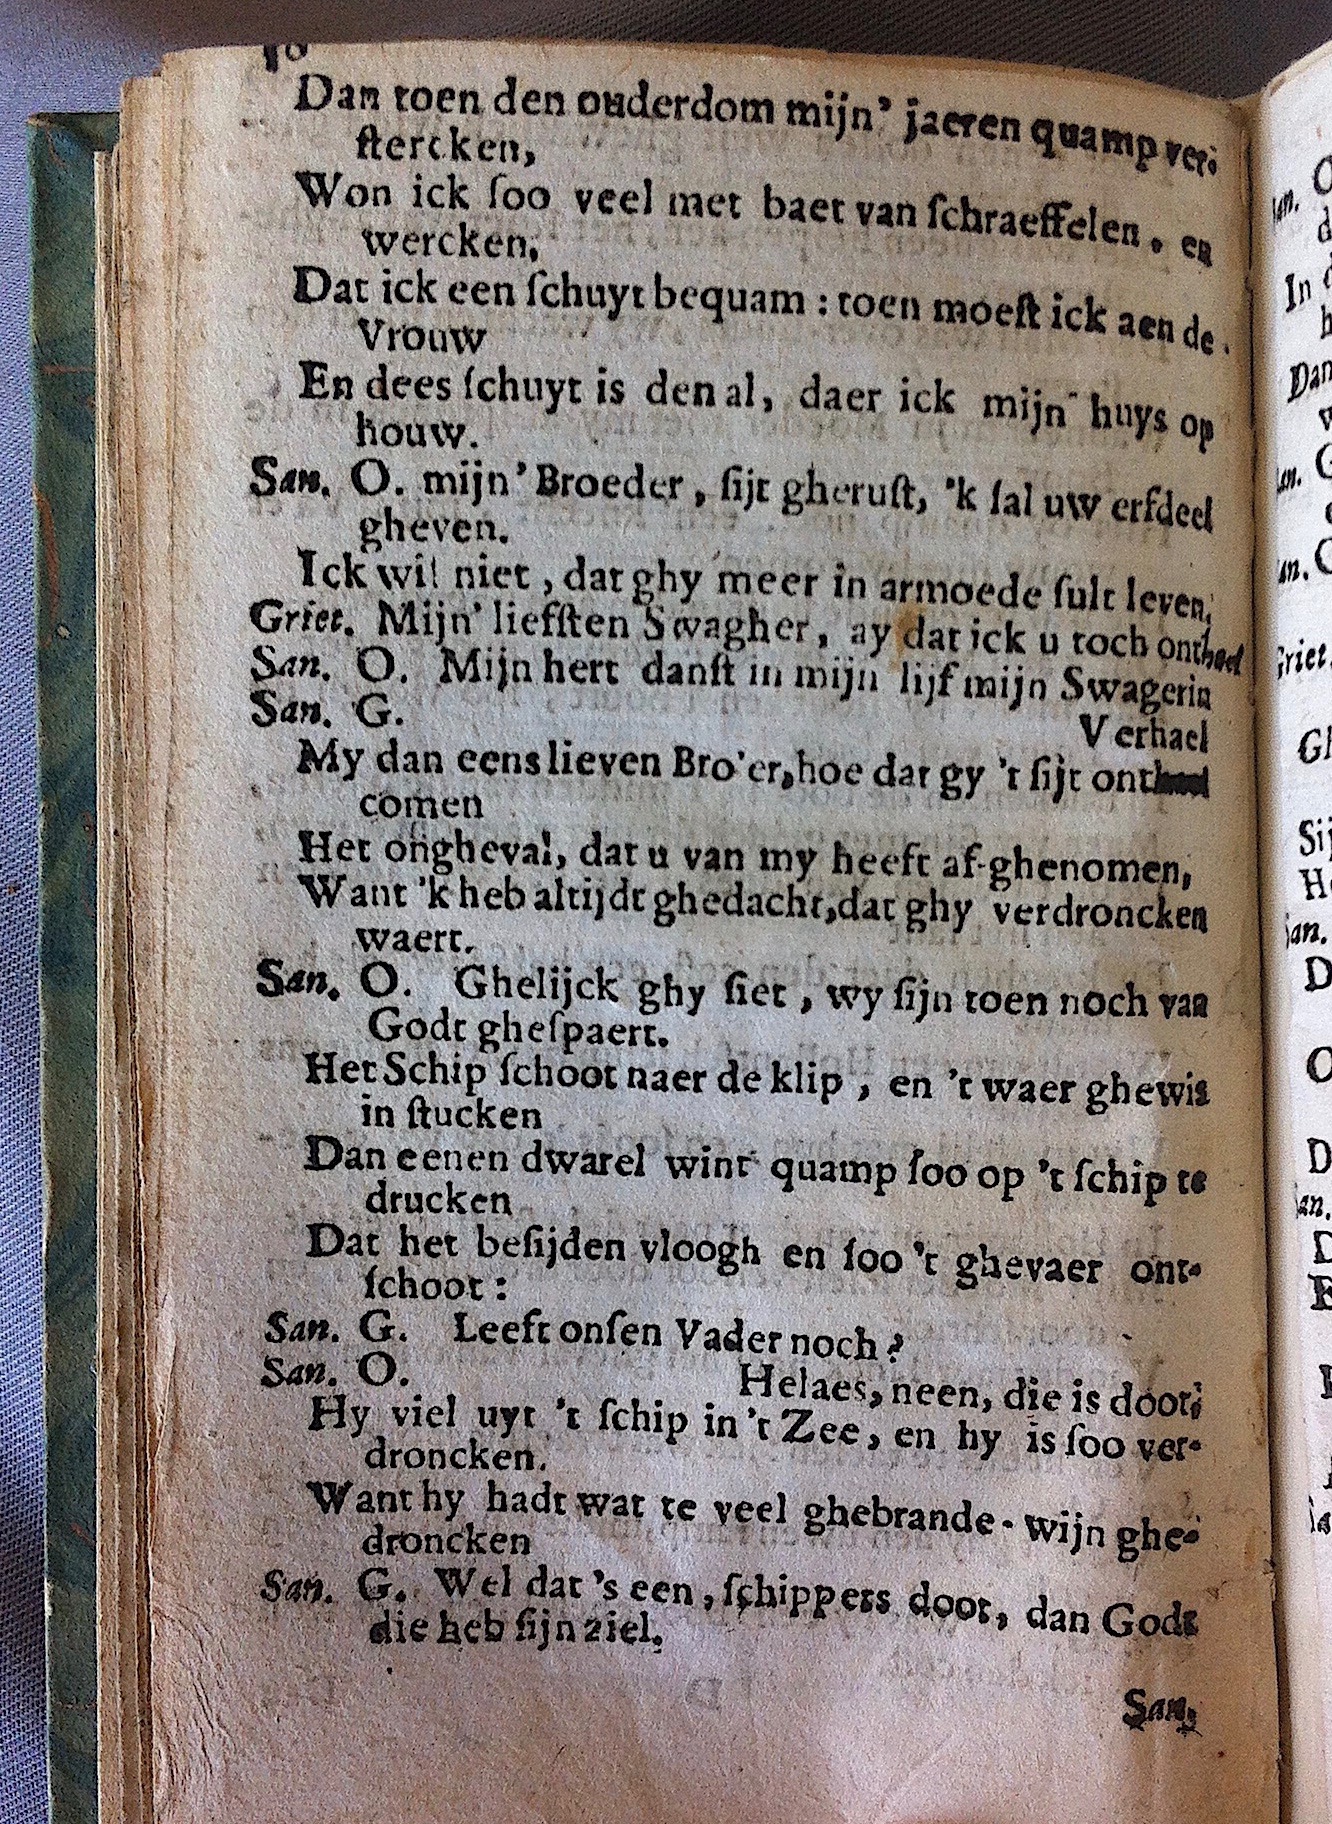 Dan toen den ouderdom mijn' jaeren quamp ver-
stercken,
Won ick soo veel met baet van schraeffelen. en
wercken,
Dat ick een schuyt bequam : toen moest ick aen de
Vrouw
En dees schuyt is den al, daer ick mijn huys op
houw.
San. O. mijn' Broeder, sijt gherust, 'k sal uw erfdeel
gheven.
Ick wil niet, dat ghy meer in armoede sult leven,
Griet. Mijn' liefsten Swagher, ay dat ick u toch ontheel
San. O. Mijn hert danst in mijn lijf mijn Swagerin
San. G. Verhael
My dan eens lieven Bro'er, hoe dat gy 't sijt ont
comen
Het ongheval, dat u van my heeft af-ghenomen,
Want 'k heb altijdt ghedacht, dat ghy verdroncken
waert.
San. O. Ghelijck ghy siet, wy sijn toen noch van
Godt ghespaert.
Het Schip schoot naer de klip, en 't waer ghewis
in stucken
Dan eenen dwarel wint quamp soo op 't schip te
drucken
Dat het besijden vloogh en soo 't ghevaer ont-
schoot :
San. G. Leeft onsen Vader noch?
San. O. Helaes, neen, die is doot;
Hy viel uyt 't schip in 't Zee, en hy is soo ver-
droncken.
Want hy hadt wat te veel ghebrande-wijn ghe-
droncken
San. G. Wel dat 's een, schippers doot, dan Godt
die heb sijn ziel.
San.